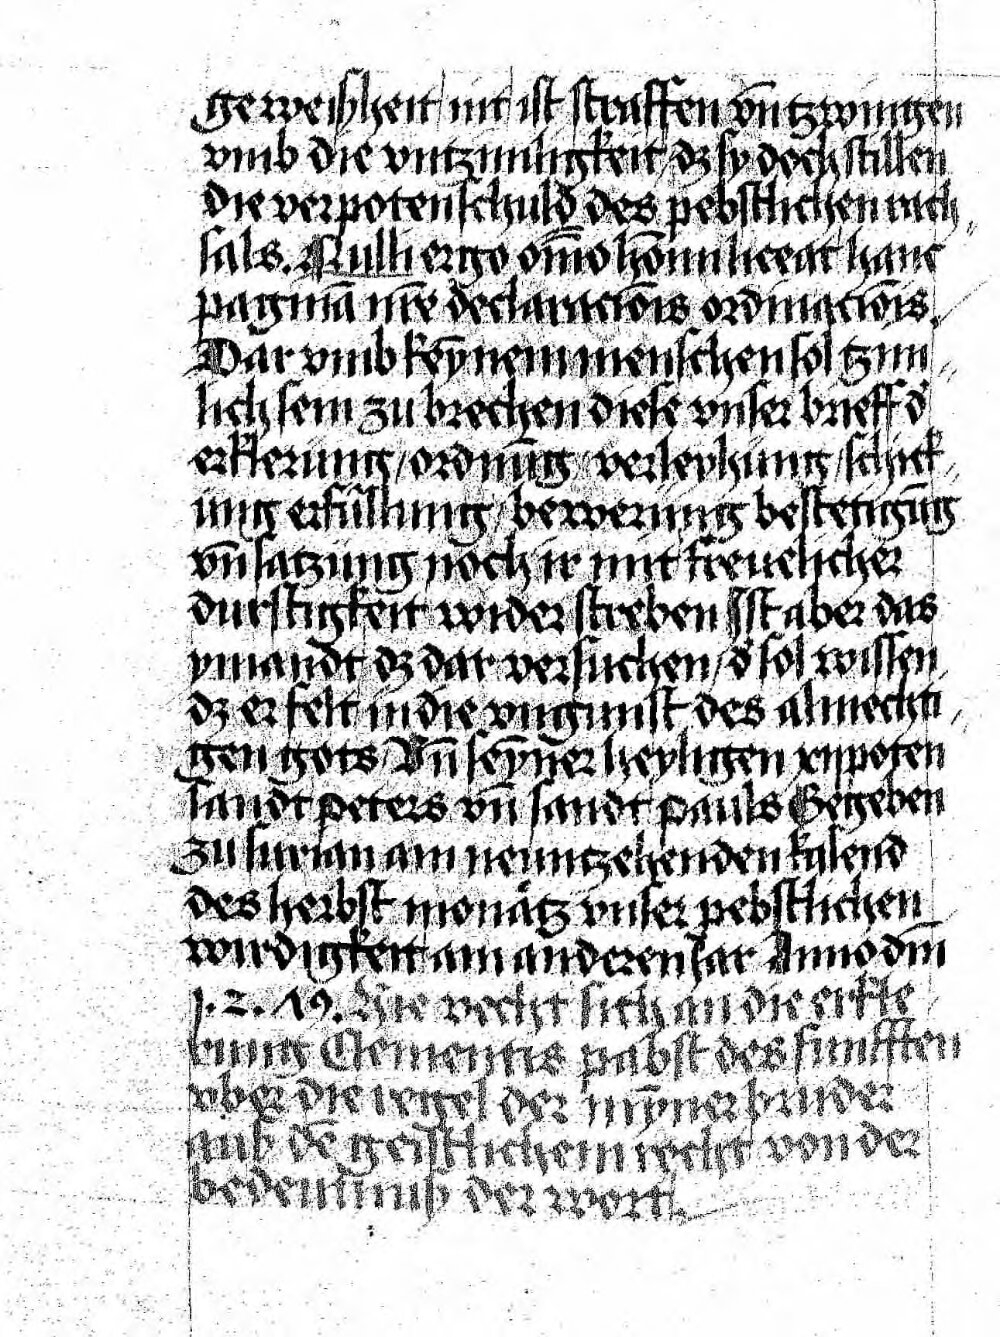 geweyßheit / mit ist straffen vn̄ tzwingen
vmb die vntzimligkeit / dz sy doch stillen
die verpoten schuld des pebstlichen rach
sals. Nulli ergo om̄o ho͞im liceat hanc
pagina͞ nr͞e declaracio͞is ordinacio͞is.
Dar vmb key̅nem menschen sol tzim //
lich sein zu brechen diese vnser brieff d'
erklerung / ordnu̅g / verleyhung / schick //
ung erfullung / bewerung bestetigu̅g
vn̄ satzung noch ir mit freuelicher
durstigkeit wider streben Ist aber das
ymandt dz dar versuchen / d' sol wissen
dz er felt in die vngunst des almechti //
gen gots / Vn̄ sey̅ner heyligen xijpoten
sandt peters vn̄ sandt pauls Gegeben
zu surian am neuntzehenden kalend
des herbst monatz vnser pebstlichen
wirdigkeit am anderen Jar Anno dm̄
1.2.79. Hie vecht sich an die erkle
rung Clementis pabst des funfften
vber die regel der my̅ner bruder
auß de͞ geistlichem recht von der
bedeutnuß der wort